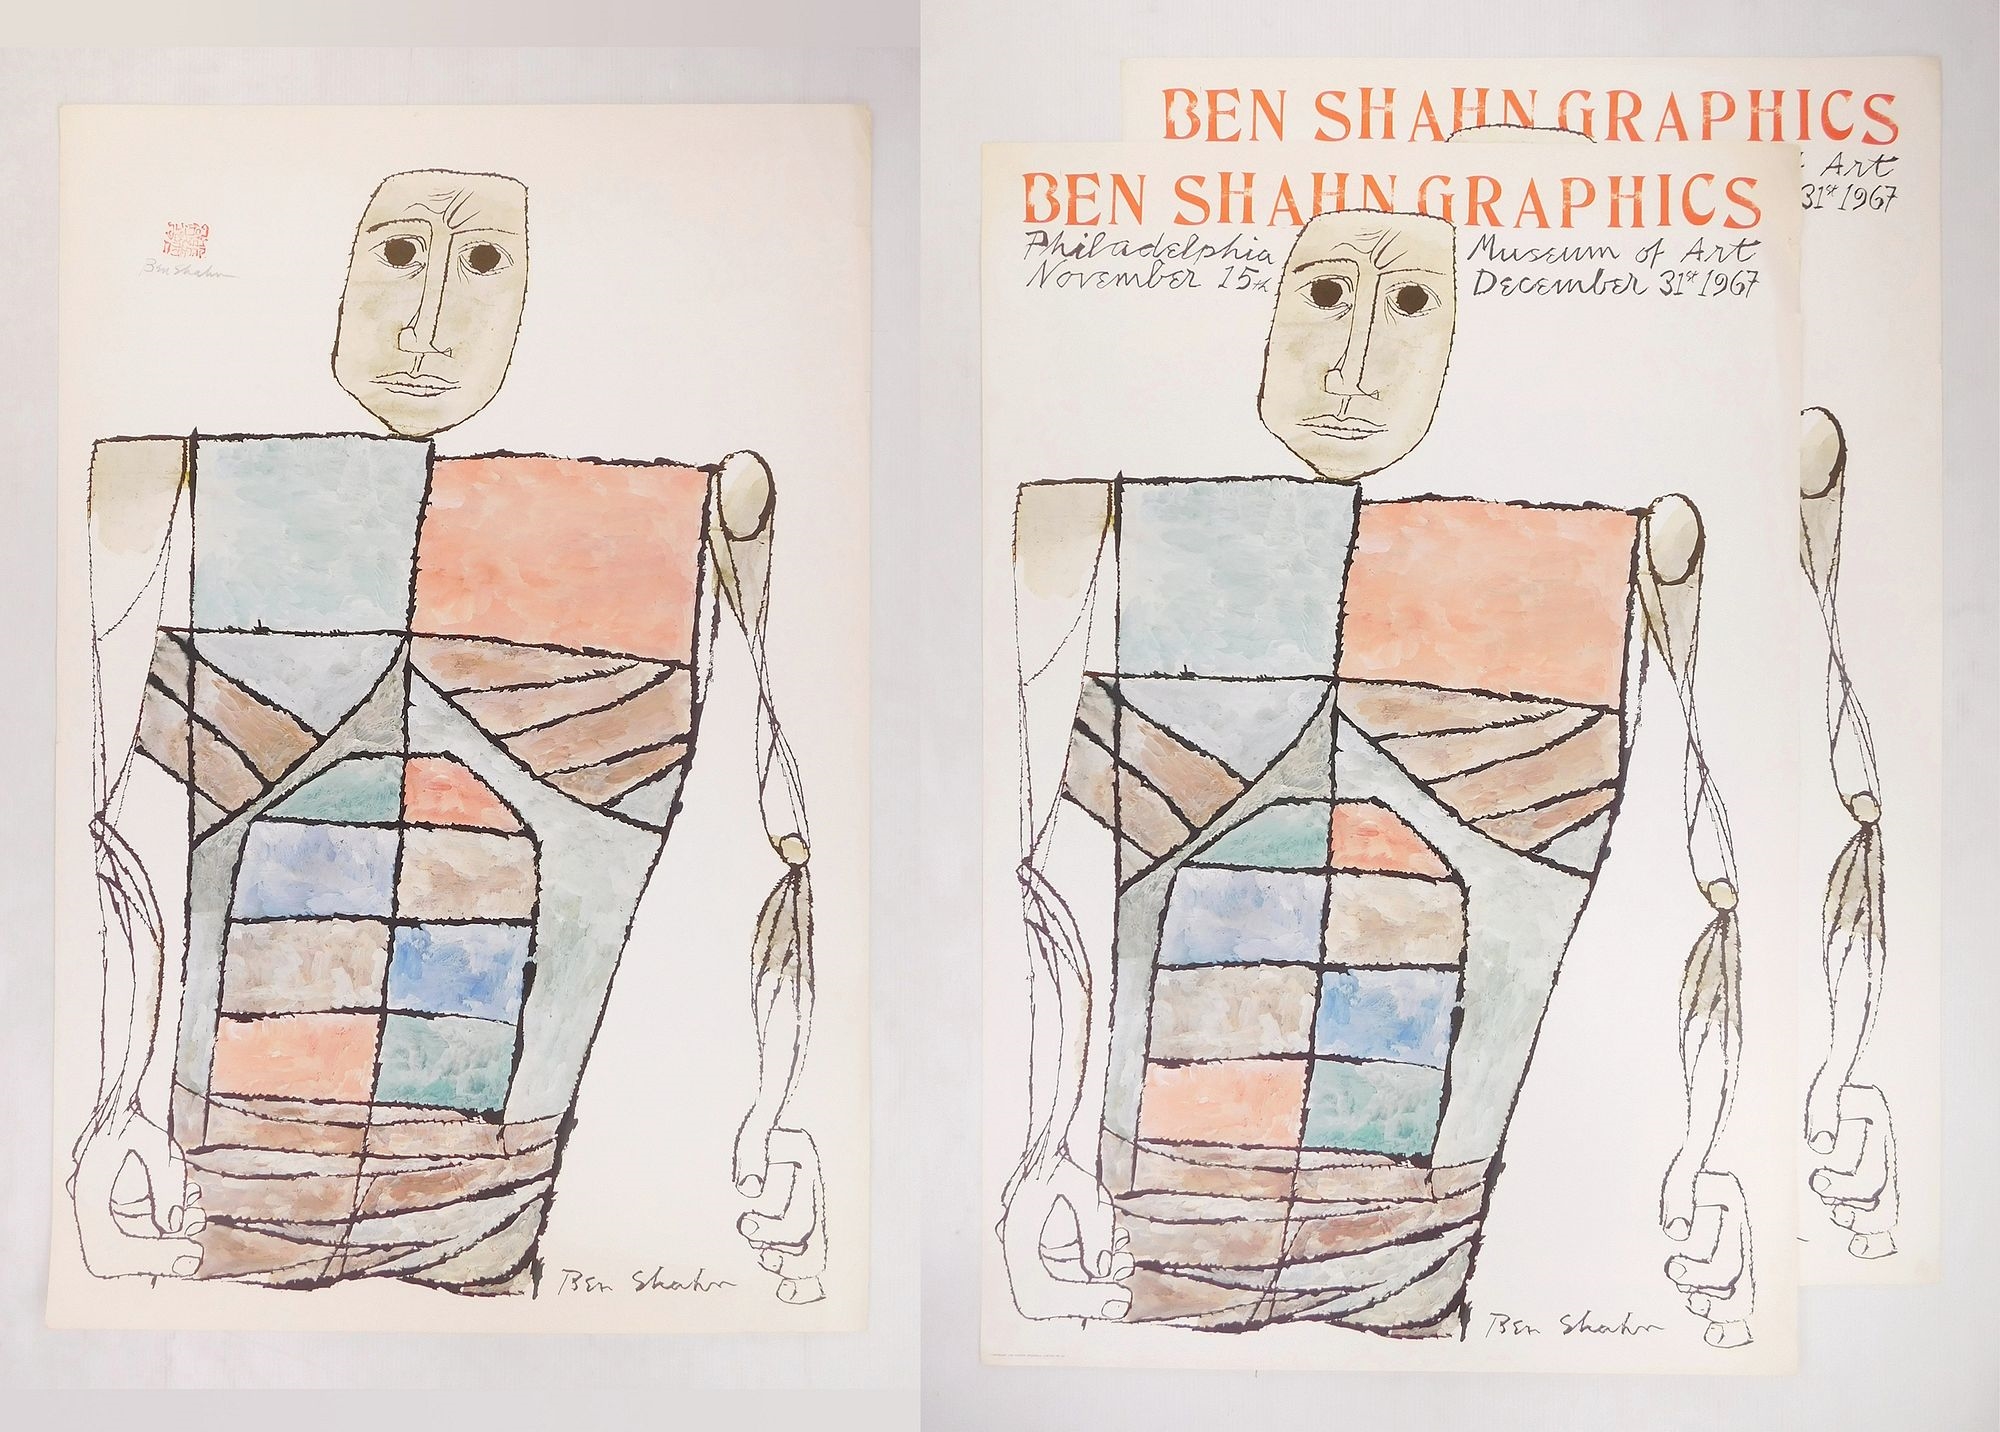 Ben Shahn
Ben Shahn
BEN SHAHN GRAPHICS
Art
31st 1967
BEN SHAHN GRAPHICS
Philadelphia Museum of Art
November 15th December 31st 1967
Ben Shahn